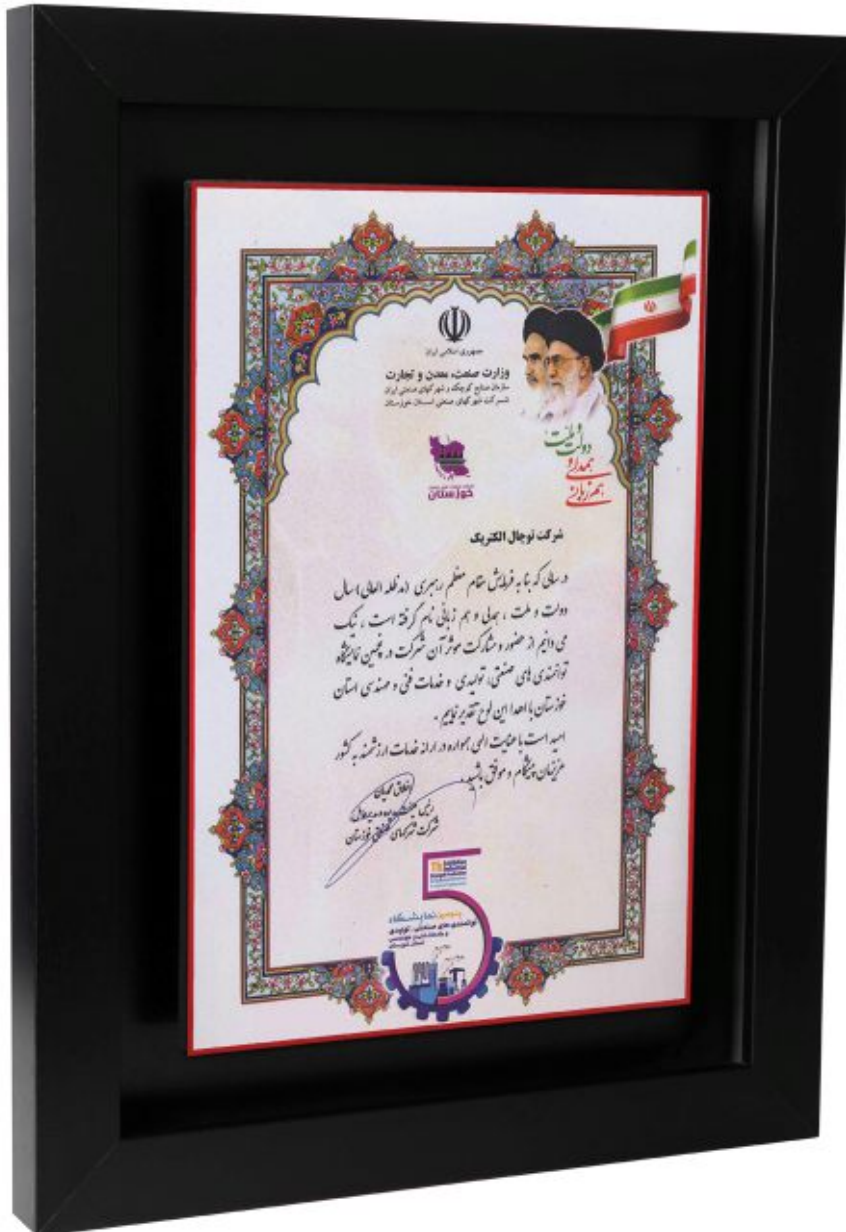 جمهوری اسلامی ایران
وزارت صنعت، معدن و تجارت
سازمان صنایع کوچک و شهرکهای صنعتی ایران
شرکت شهرکهای صنعتی استان خوزستان
خوزستان
دولت و ملت
همدلی و
هم زبانی
شرکت توچال الکتریک
در سالی که بنا به فرمایش مقام معظم رهبری (مدظله العالی) سال
دولت و ملت ، همدلی و هم زبانی نام گرفته است ، نیک
می دانیم از حضور و مشارکت موثر آن شرکت در پنجمین نمایشگاه
توانمندی های صنعتی، تولیدی و خدمات فنی و مهندسی استان
خوزستان با اهدا این لوح تقدیر نماییم .
امید است با عنایت الهی همواره در ارائه خدمات ارزشمند به کشور
عزیزمان پیشگام و موفق باشید.
رئیس هیئت مدیره و مدیرعامل
شرکت شهرکهای صنعتی خوزستان
5
Th
پنجمین نمایشگاه
توانمندی های صنعتی، تولیدی
و خدمات فنی و مهندسی
استان خوزستان